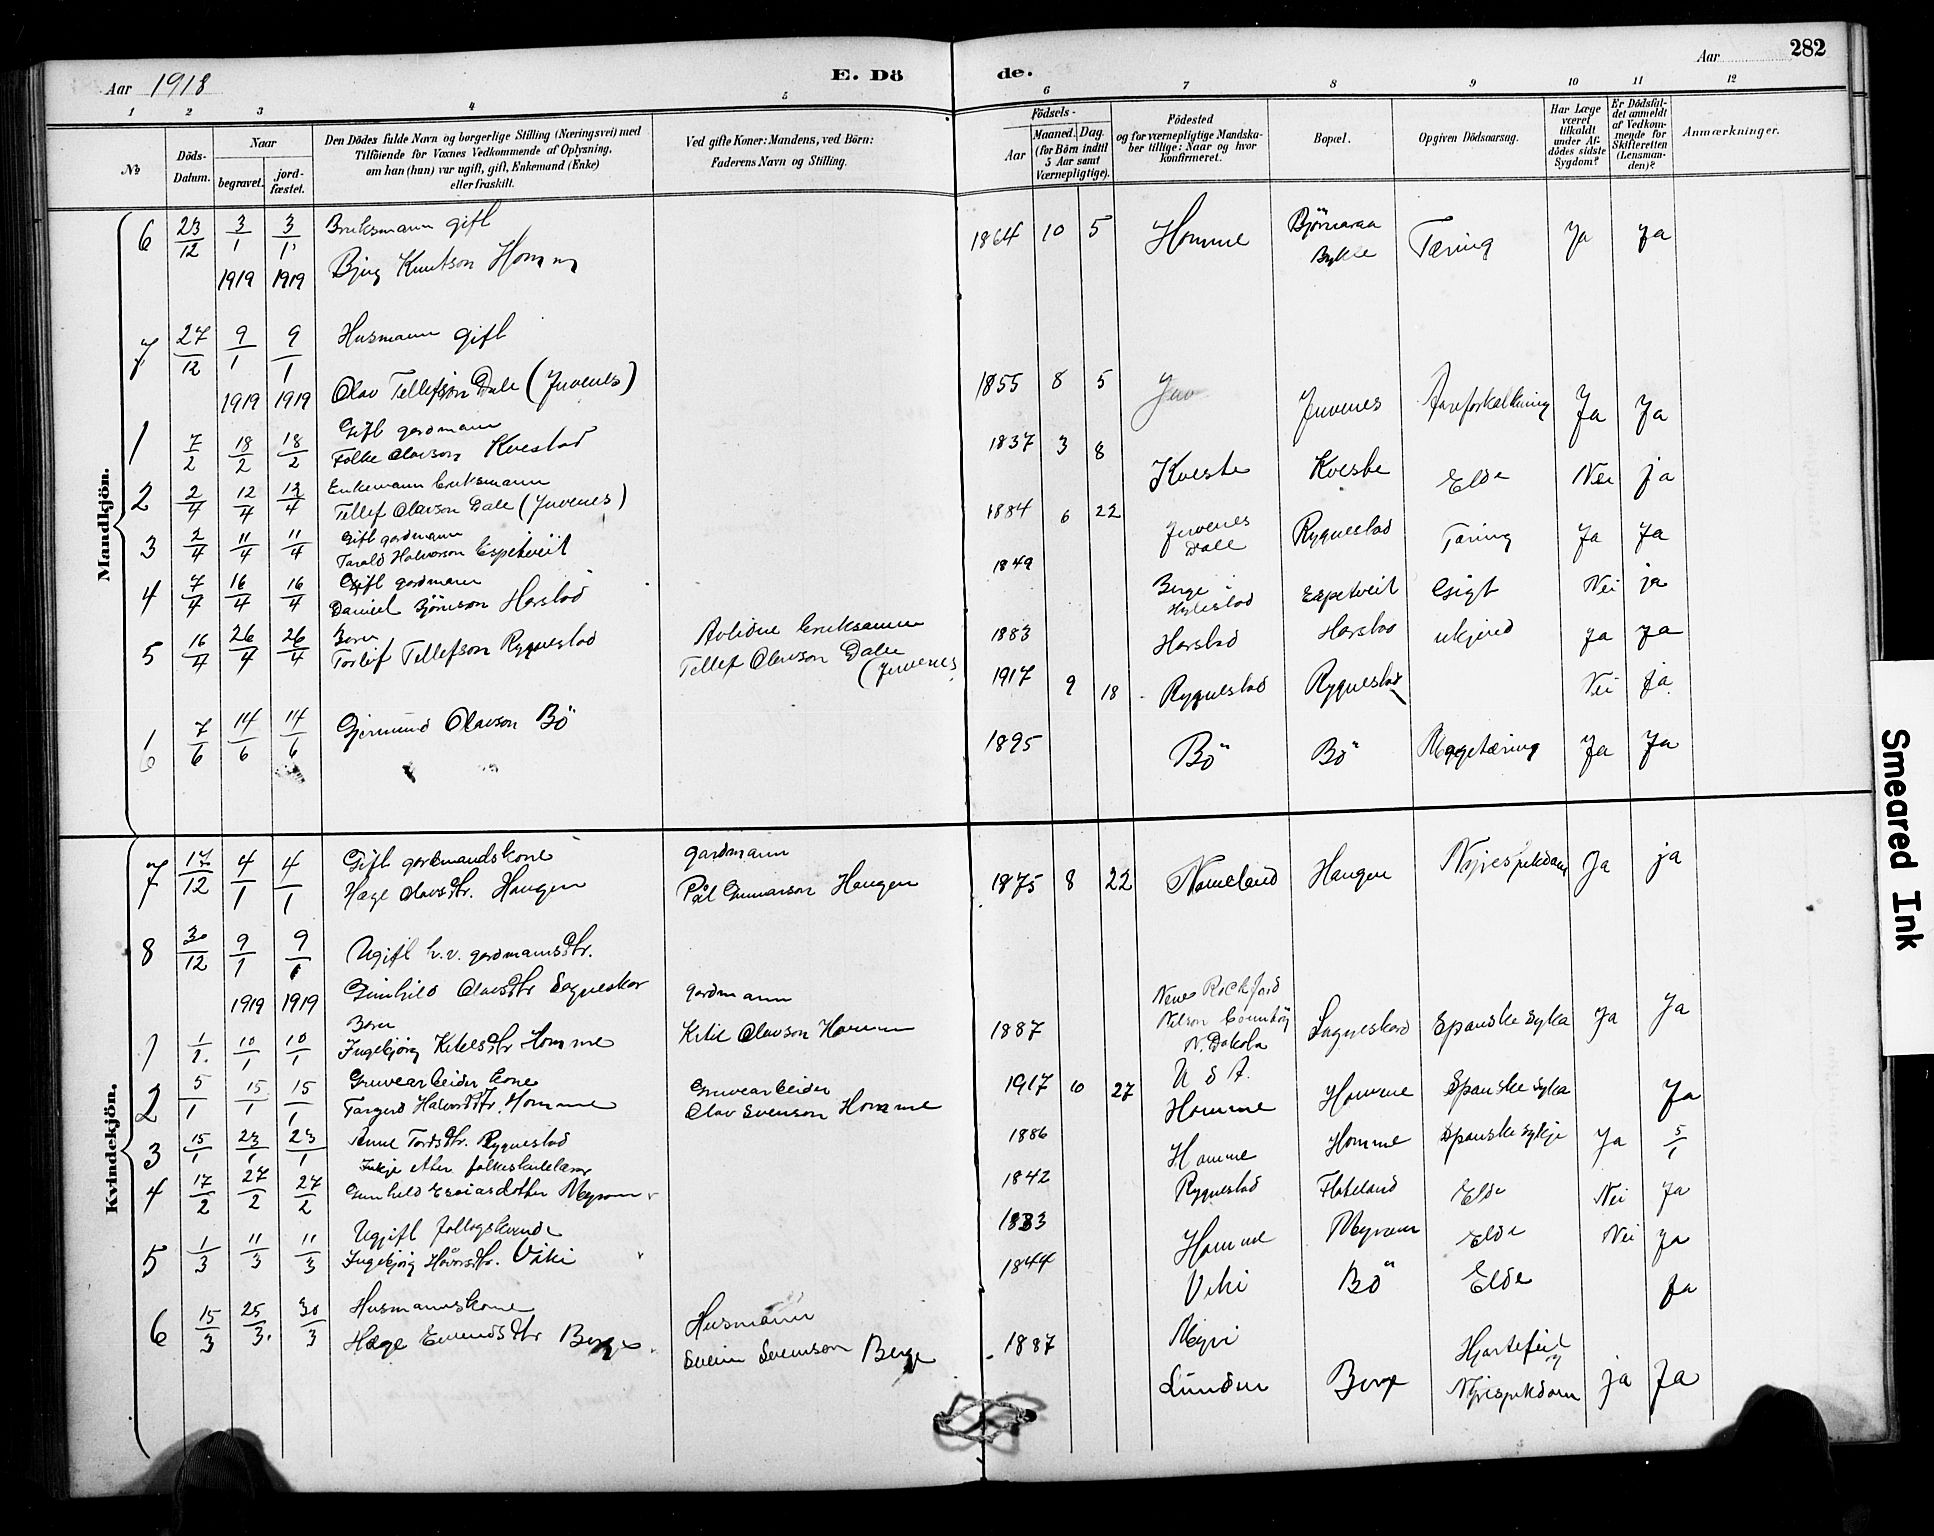 Aar 1918
E. Dö
de.
Aar
282
1 2 3 4 5 6 7 8 9 10 11 12
No
Döds-Datum.
Naar
begravet.
jord-fæstet.
Den Dödes fulde Navn og borgerlige Stilling (Næringsvei) med
Tilföiende for Voxnes Vedkommende af Oplysning,
om han (hun) var ugift, gift, Enkemand (Enke)
eller fraskilt.
Ved gifte Koner: Mandens, ved Börn:
Faderens Navn og Stilling.
Födsels-
Aar
Maaned. Dag.
(for Börn indtil
5 Aar samt
Værnepligtige).
Födested
og for værnepligtige Mandska-
ber tillige: Naar og hvor
konfirmeret.
Bopæl.
Opgiven Dödsaarsag.
Har Læge
været
tilkaldt
under Af-
dödes sidste
Sygdom?
Er Dödsfal-
det anmeldt
af Vedkom-
mende for
Skifteretten
(Lensman-
den)?
Anmærkninger.
Mandkjön.
6 23/12 3/1 1919 3/1 1919 Bruksmann gift
Bjug Knutson Homme 1864 10 5 Homme Bjørnaraa Bykle Tæring Ja Ja
7 27/12 9/1 1919 9/1 1919 Husmann gift
Olav Tellefson Dale (Juvenes) 1855 8 5 Juv Juvenes Aareforkalkning Ja Ja
1 7/2 18/2 18/2 Gift gardmann
Folke Olavson Kvestad 1837 3 8 Kveste Kveste Elde Nei ja
2 2/4 12/4 12/4 Enkemann bruksmann
Tellef Olavson Dale (Juvenes) 1884 6 22 Juvenes Dale Rygnestad Tæring Ja Ja
3 2/4 11/4 11/4 Gift gardmann
Tarald Halvorson Espetveit 1849 Berge Hylestad Espetveit Gigt Nei ja
4 7/4 16/4 16/4 Gift gardmann
Daniel Bjørnson Harstad 1883 Harstad Harstad ukjend ja ja
5 16/4 26/4 26/4 Born
Torleif Tellefson Rygnestad Avlidne bruksmann
Tellef Olavson Dale (Juvenes 1917 9 18 Rygnestad Rygnestad Nei ja
6 7/6 14/6 14/6 Gjermund Olavson Bö 1895 Bö Bö Ryggetæring Ja Ja
Kvindekjön.
7 17/12 4/1 4/1 Gift gardmandskone
Hæge Olavsdtr. Haugen gardmann
Pål Gunnarson Haugen 1875 8 22 Nomeland Haugen Nyresjukdom Ja ja
8 30/12 9/1 1919 9/1 1919 Ugift h.v. gardmannsdtr.
Gunhild Olavsdtr Sagneskar gardmann 1887 Rockford
Nelson
N. Dakota
U S A. Sagneskard Spanske syka ja ja
1 1/1 10/1 10/1 Born
Ingebjørg Ketelsdtr Homme Ketil Olavson Homme 1917 10 27 Homme Homme Spanske syka Ja
2 5/1 15/1 15/1 Gruvearbeider kone
Targerd Halvordtr. Homme Gruvearbeider
Olav Svenson Homme 1886 Homme Homme Spanske sykje Ja 5/1
3 15/1 23/1 23/1 Anne Tordsdtr. Rygnestad
Enkje etter folkeskulelærar 1842 Rygnestad Flateland Elde Nei Ja
4 17/2 27/2 27/2 Gunhild Esaiasdotter Myrum 1833 Homme Myrum Elde Nei Ja
5 1/3 11/3 11/3 Ugift fattigskvende
Ingebjørg Håvorsdtr. Viki 1844 Viki Bö Elde Ja
6 15/3 25/3 30/3 Husmannskone
Hæge Eivindsdtr Berge Husmann
Svein Sveinson Berge 1887 Myri
Lunden Berge Hjartefeil og
Nyresjukdom ja Ja
Smeared Ink